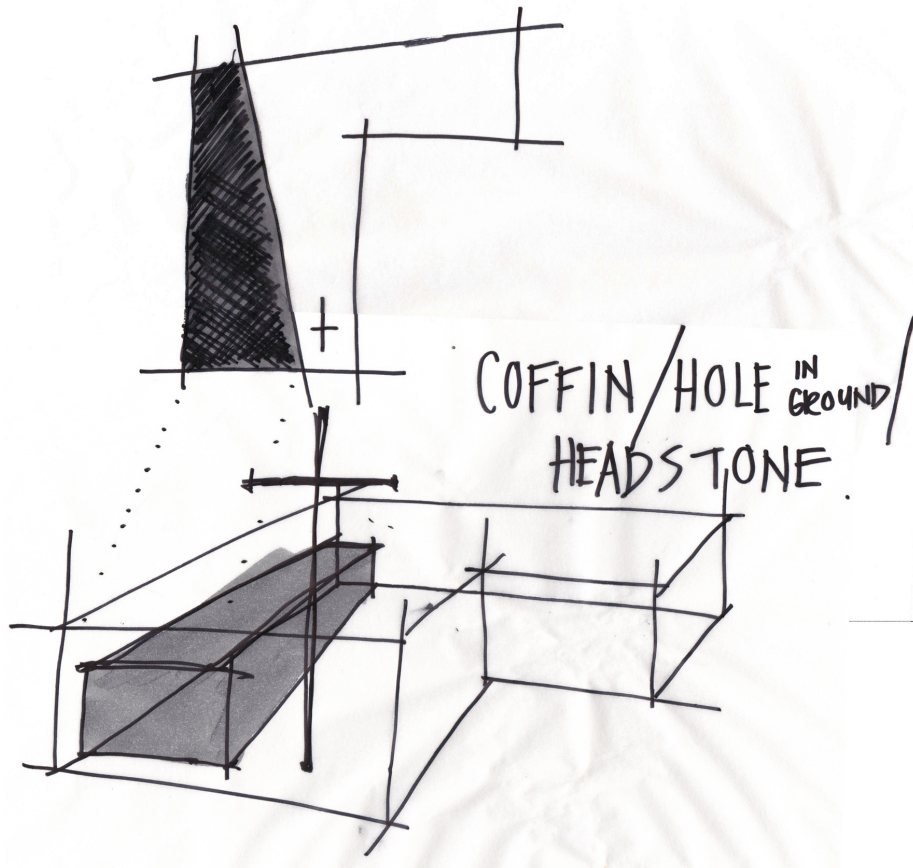 COFFIN/HOLE IN GROUND/
HEADSTONE